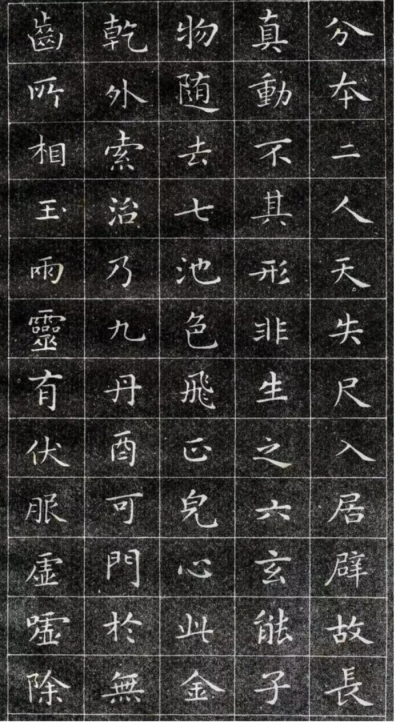 分本二人天失尺入居辟故長
真動不其形非生之六玄能子
物随去七池色飛正皃心此金
乾外索治乃九丹酉可門於無
齒所相玉雨靈有伏服虚嘘除